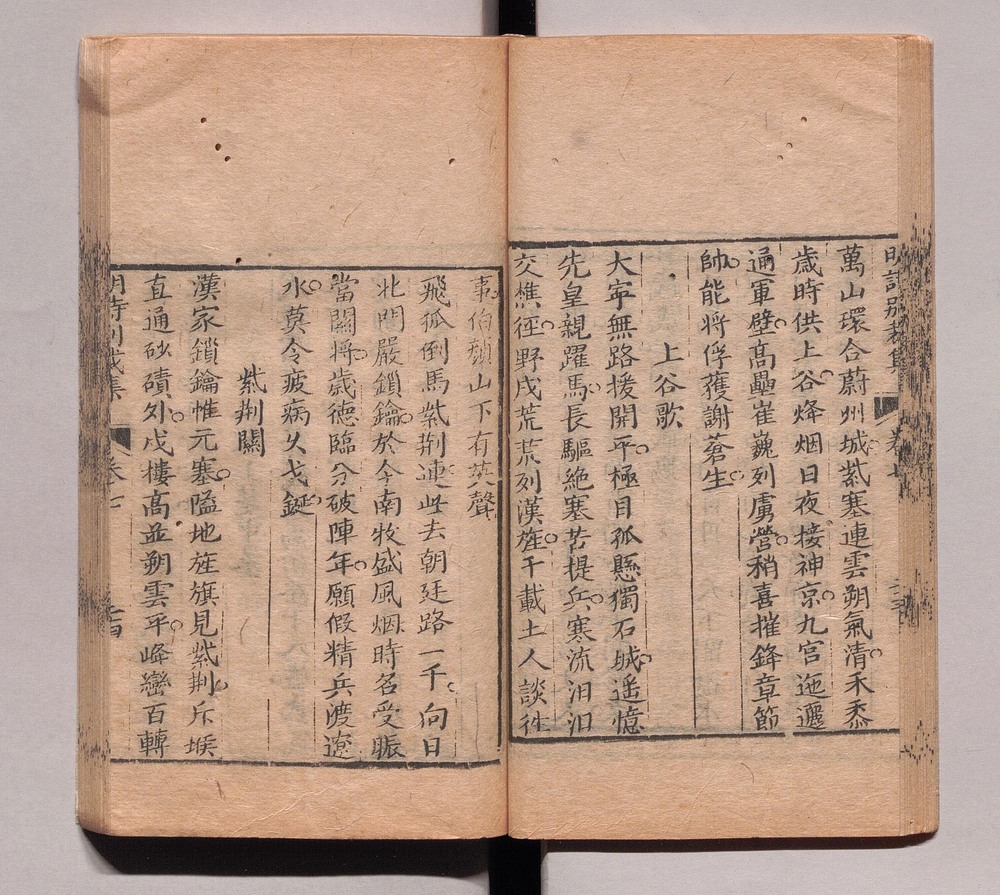 明詩別裁集 卷七
萬山環合蔚州城紫塞連雲朔氣清禾黍
歲時供上谷烽烟日夜接神京九宮迤邐
通軍壁高壘崔巍列虜營稍喜摧鋒章節
帥能將俘獲謝蒼生
上谷歌
大寧無路援開平極目孤懸獨石城遙憶
先皇親躍馬長驅絕塞苦提兵寒流汨汨
交樵徑野戍荒荒列漢旌千載土人談往
事伯顏山下有英聲
飛狐倒馬紫荆連此去朝廷路一千向日
北門嚴鎖鑰於今南牧盛風烟時名受賑
當關將歲德臨分破陣年願假精兵渡遼
水莫令疲病火戈鋋
紫荆關
漢家鎖鑰惟元塞隘地旌旗見紫荆斥堠
直通砂磧外戍樓高並朔雲平峰巒百轉
明詩別裁集 卷七